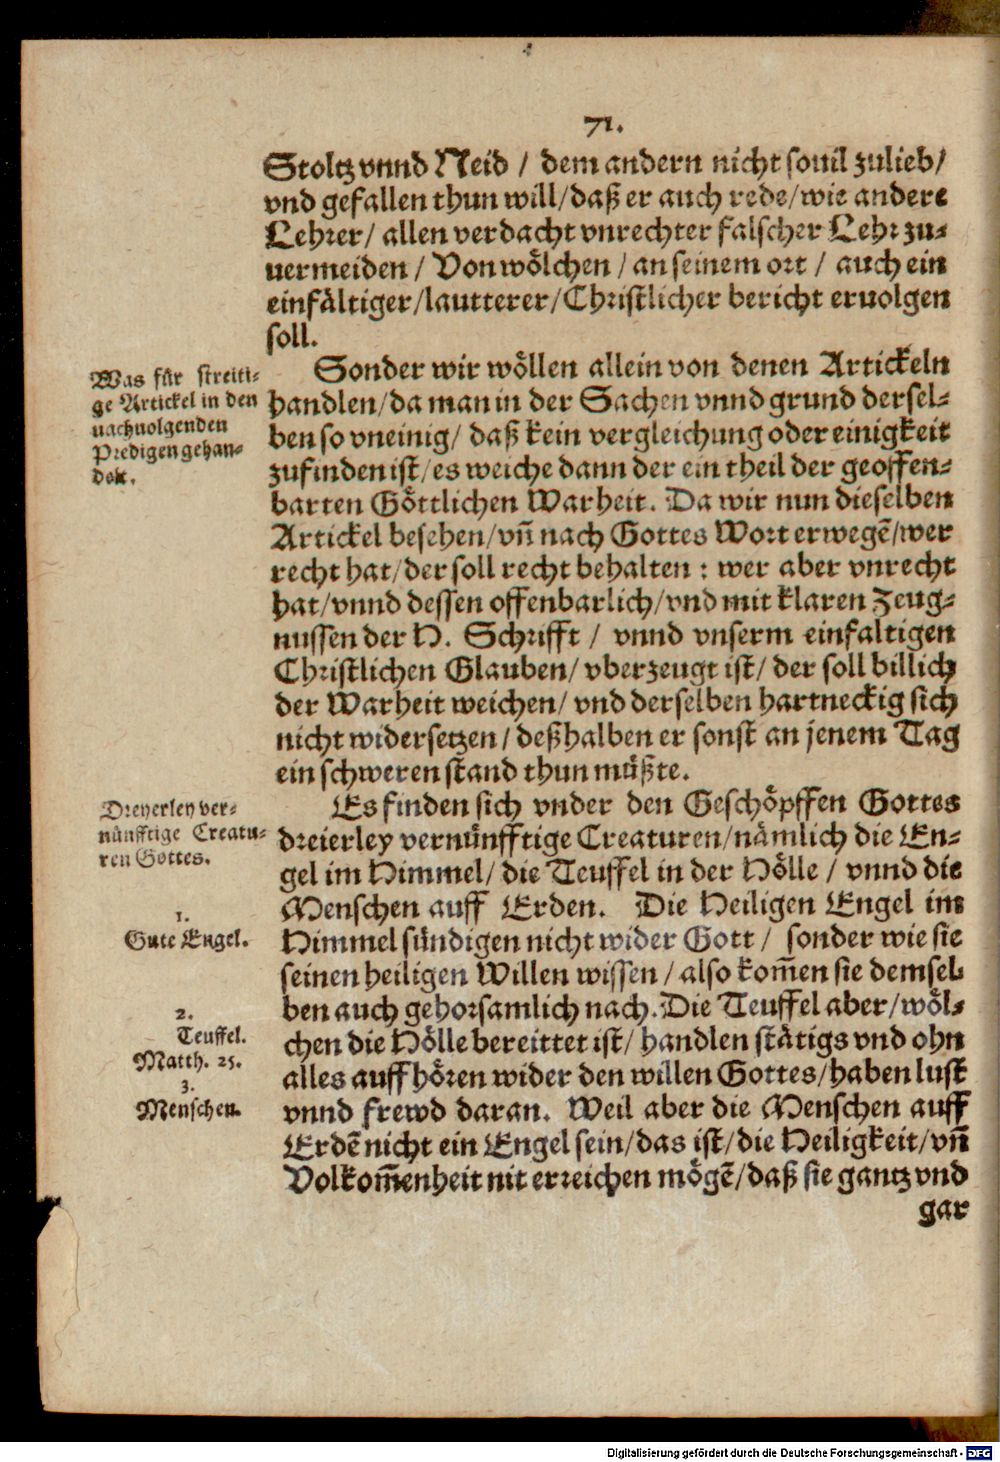 71.
Stoltz vnnd Neid / dem andern nicht souil zulieb/
vnd gefallen thun will/daß er auch rede/wie andere
Lehrer/ allen verdacht vnrechter falscher Lehr zu-
uermeiden / Von wölchen / an seinem ort / auch ein
einfältiger/lautterer/Christlicher bericht eruolgen
soll.
Was für streiti-
ge Artickel in den
nachuolgenden
Predigen gehan-
delt.
Sonder wir wöllen allein von denen Artickeln
handlen/da man in der Sachen vnnd grund dersel-
ben so vneinig/ daß kein vergleichung oder einigkeit
zufinden ist/es weiche dann der ein theil der geoffen-
barten Göttlichen Warheit. Da wir nun dieselben
Artickel besehen/vñ nach Gottes Wort erwegẽ/wer
recht hat/der soll recht behalten : wer aber vnrecht
hat/vnnd dessen offenbarlich/vnd mit klaren Zeug-
nussen der H. Schrifft / vnnd vnserm einfaltigen
Christlichen Glauben/ vberzeugt ist/ der soll billich
der Warheit weichen/ vnd derselben hartneckig sich
nicht widersetzen/ deßhalben er sonst an jenem Tag
ein schweren stand thun müßte.
Dreyerley ver-
nünfftige Creatu-
ren Gottes.
Es finden sich vnder den Geschöpffen Gottes
dreierley vernünfftige Creaturen/nämlich die En-
gel im Himmel/ die Teuffel in der Hölle / vnnd die
Menschen auff Erden. Die Heiligen Engel im
1.
Gute Engel.
Himmel sündigen nicht wider Gott / sonder wie sie
seinen heiligen Willen wissen / also kom̃en sie demsel-
ben auch gehorsamlich nach. Die Teuffel aber/wöl-
2.
Teuffel.
Matth. 25.
chen die Hölle bereittet ist/ handlen stätigs vnd ohn
alles auffhören wider den willen Gottes/haben lust
3.
Menschen.
vnnd frewd daran. Weil aber die Menschen auff
Erdẽ nicht ein Engel sein/das ist/die Heiligkeit/vñ
Volkom̃enheit nit erreichen mögẽ/daß sie gantz vnd
gar
Digitalisierung gefördert durch die Deutsche Forschungsgemeinschaft - DFG